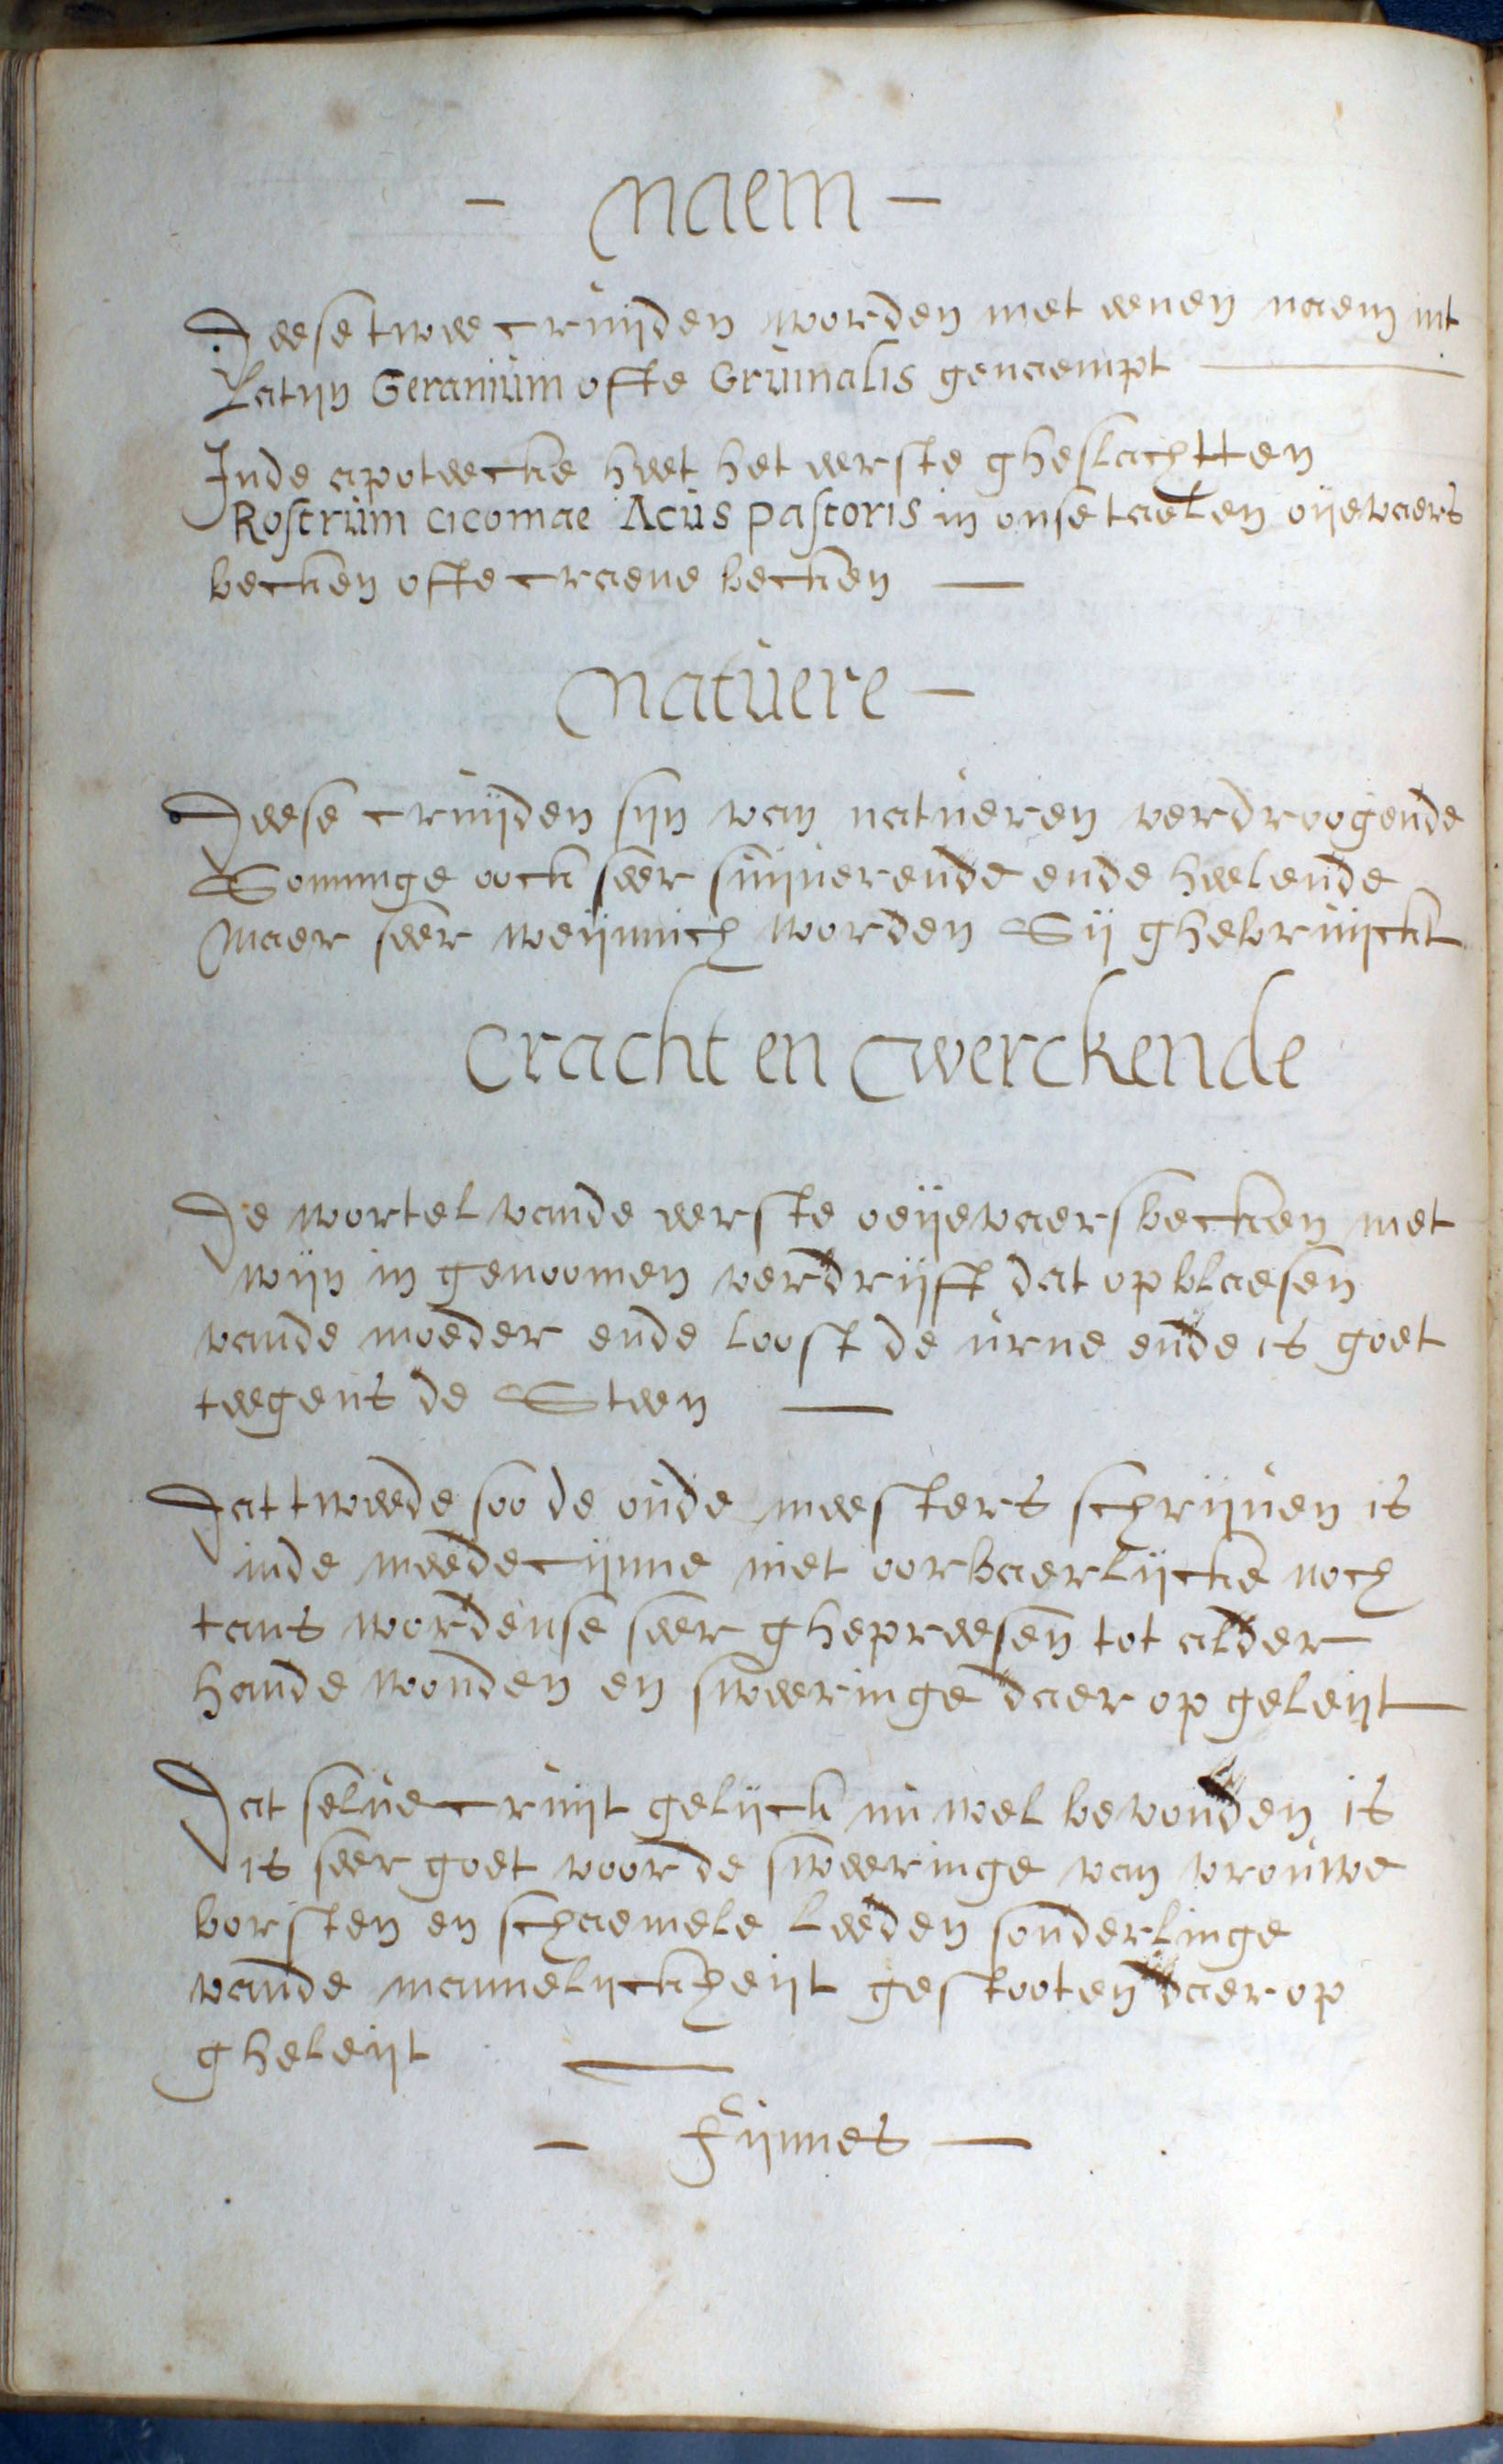 - Naem -
Deese twee cruijden worden met eenen naem int
Latijn Geranium ofte Gruinalis genaempt
Inde apoteecke heet het eerste gheslachtten
Rostrum cicomae Acus pastoris in onse taelen oijevaers
becken ofte craene becken
Natuere -
Deese cruijden sijn van natueren verdroogende
Sommige oock seer suijverende ende heelende
Maer seer weijnnich worden Sij ghebruijckt
Cracht en Werckende
De wortel vande eerste oeijevaersbecken met
wijn in genoomen verdrijft dat opblaesen
vande moeder ende loost de urne ende is goet
teegens de Steen
Dat tweede soo de oude meesters schrijven is
inde meedecijnne niet oorbaerlijcke noch
tans wordense seer ghepreesen tot alder
hande wonden en sweeringe daer op geleijt
Dat selve cruijt gelijck nu wel bevonden is
is seer goet voor de sweeringe van vrouwe
borsten en schaemele leeden sonderlinge
vande mannelijckheijt gestooten daer op
gheleijt
- Fijnnes -